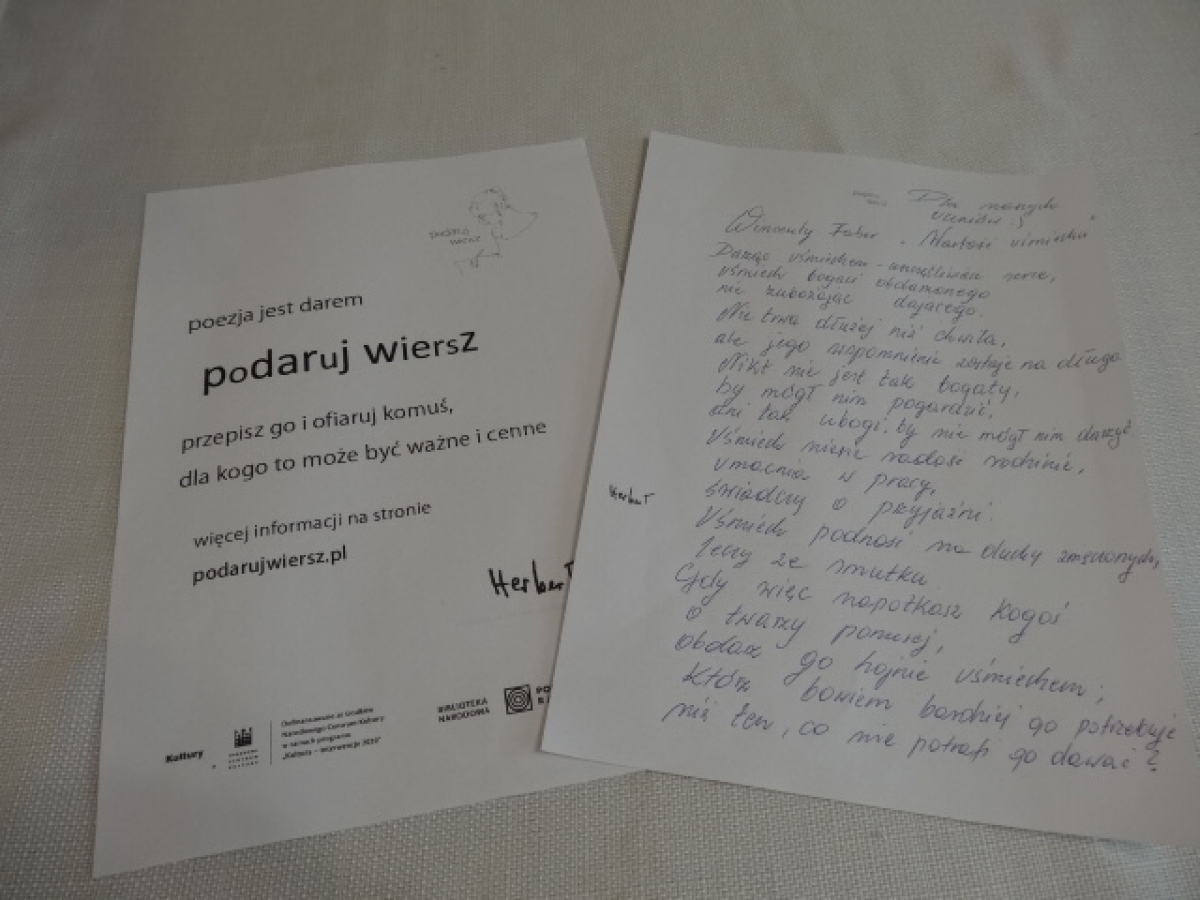 podaruj
wiersz
poezja jest darem
podaruj wiersz
przepisz go i ofiaruj komuś,
dla kogo to może być ważne i cenne
więcej informacji na stronie
podarujwiersz.pl
Herbert
Kultury
Dofinansowano ze środków
Narodowego Centrum Kultury
w ramach programu
„Kultura – Interwencje 2018”
BIBLIOTEKA
NARODOWA
PO
Dla
uczniów :)
Wincenty Faber - Wartość uśmiechu"
Darząc uśmiechem - uszczęśliwiasz serce,
uśmiech bogaci obdarowanego
nie zubożając dającego.
Nie trwa dłużej niż chwila,
ale jego wspomnienie zostaje na długo
Nikt nie jest tak bogaty,
by mógł nim pogardzić,
ani tak ubogi, by nie mógł nim darzyć.
Uśmiech niesie radość rodzinie,
umacnia w pracy,
świadczy o przyjaźni.
Uśmiech podnosi na duchu zmęczonych,
leczy ze smutku
Gdy więc napotkasz kogoś
o twarzy ponurej,
obdarz go hojnie uśmiechem;
Któż bowiem bardziej go potrzebuje
niż ten, co nie potrafi go dawać?
Herbert